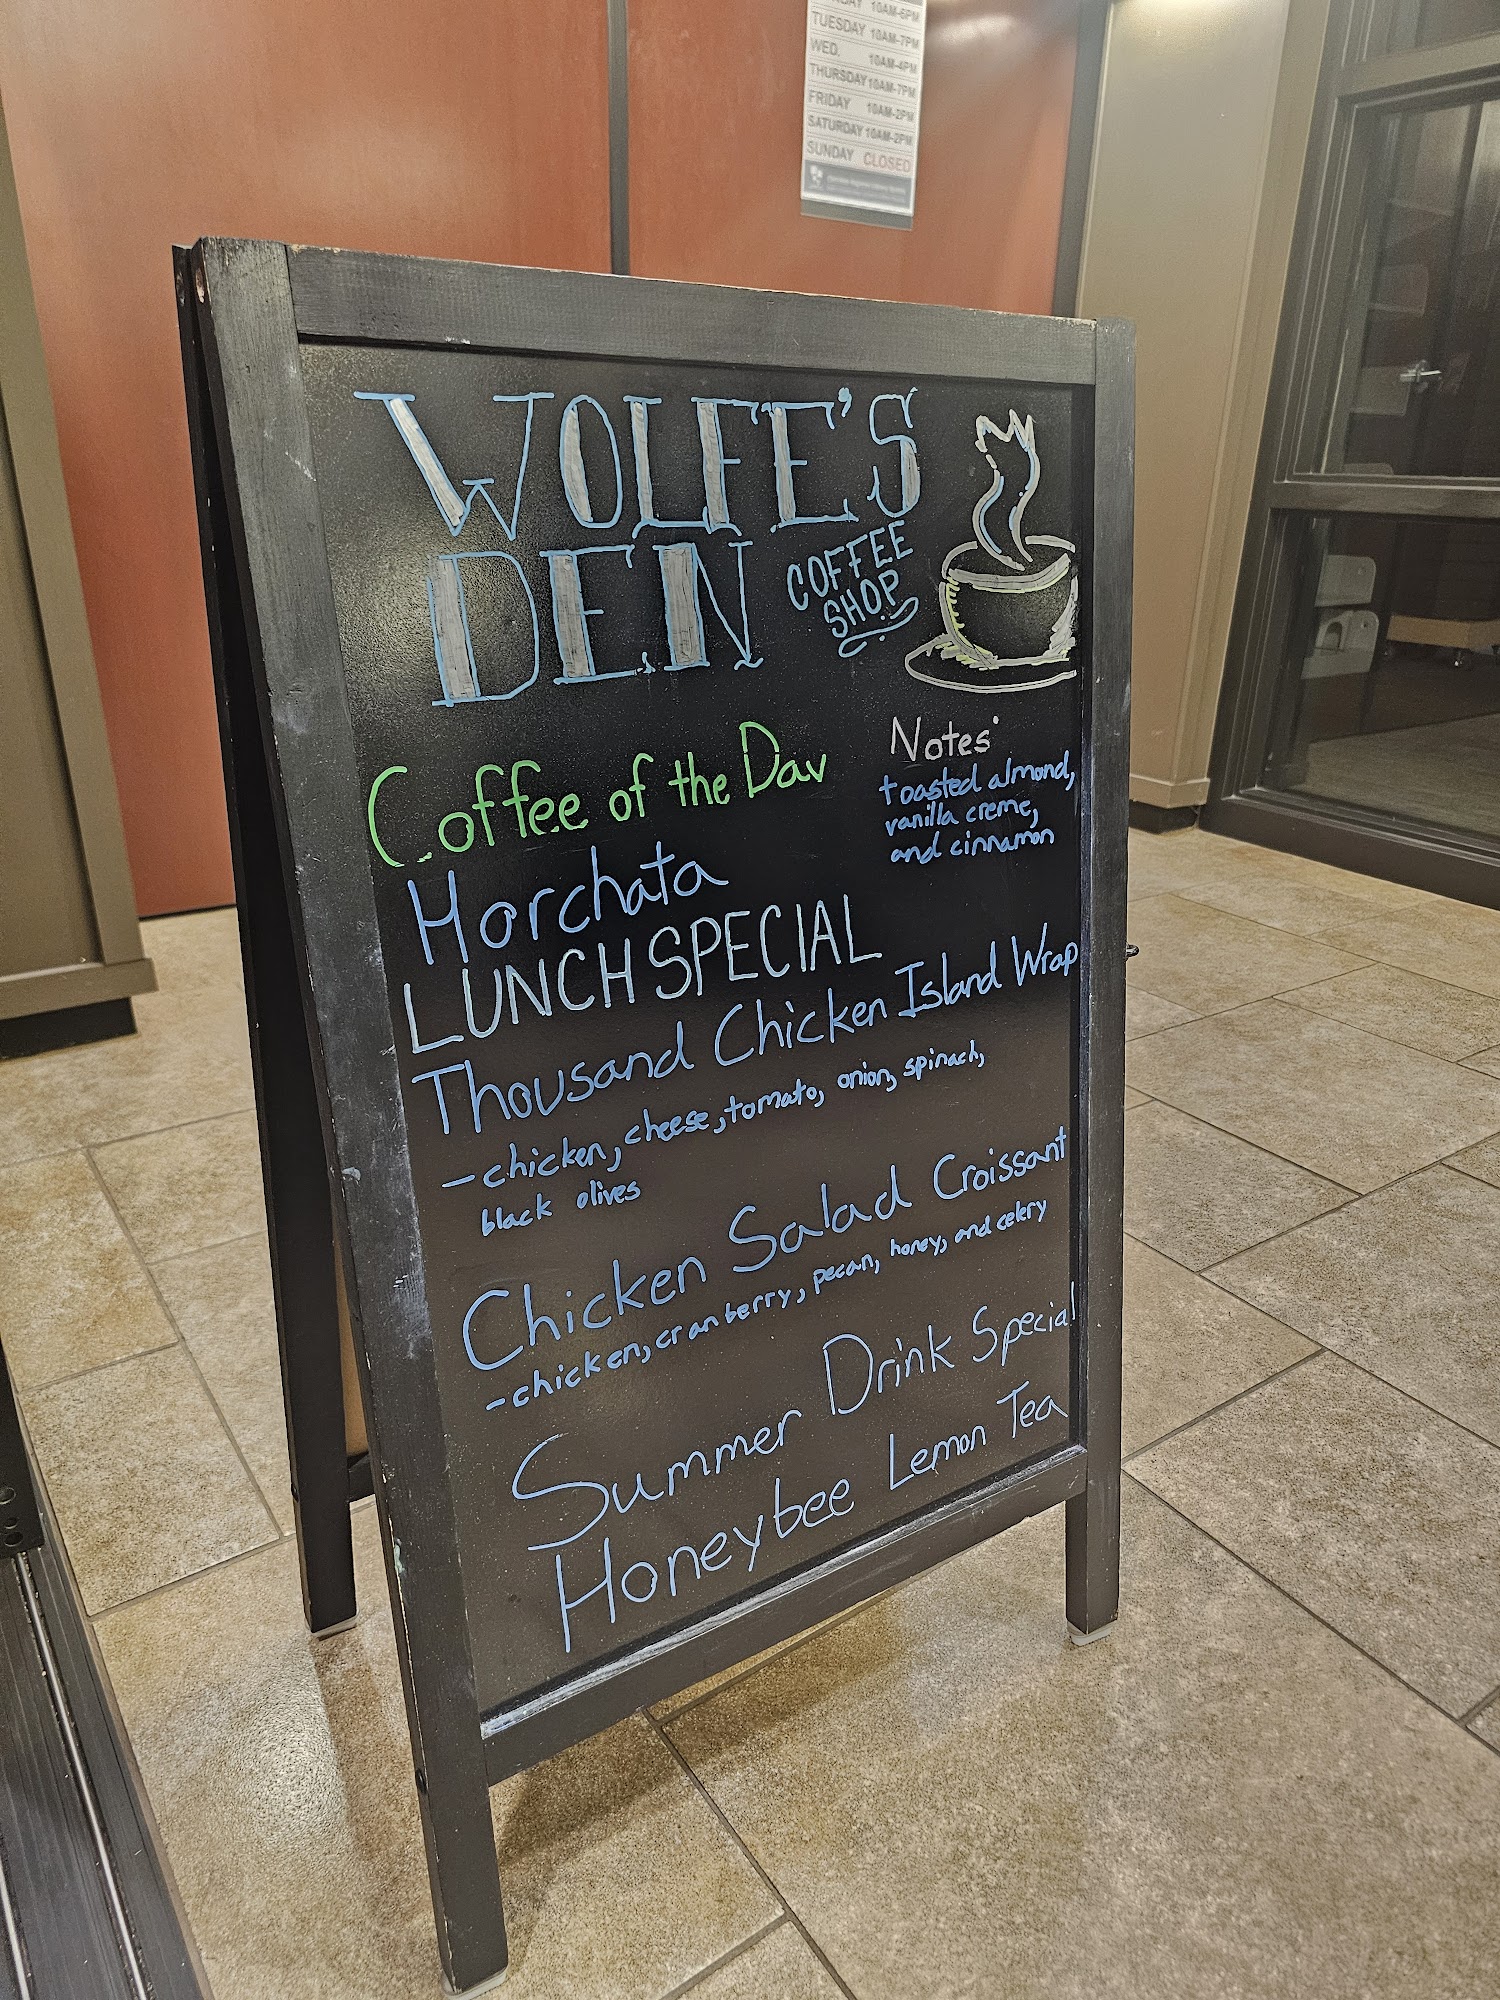 TUESDAY 10AM-7PM
WED. 10AM-4PM
THURSDAY 10AM-7PM
FRIDAY 10AM-2PM
SATURDAY 10AM-2PM
SUNDAY CLOSED
WOLFE'S
DEN
COFFEE
SHOP
Coffee of the Day
Horchata
Notes
toasted almond,
vanilla creme,
and cinnamon
LUNCH SPECIAL
Thousand Chicken Island Wrap
-chicken, cheese, tomato, onion, spinach,
black olives
Chicken Salad Croissant
-chicken, cranberry, pecan, honey, and celery
Summer Drink Special
Honeybee Lemon Tea